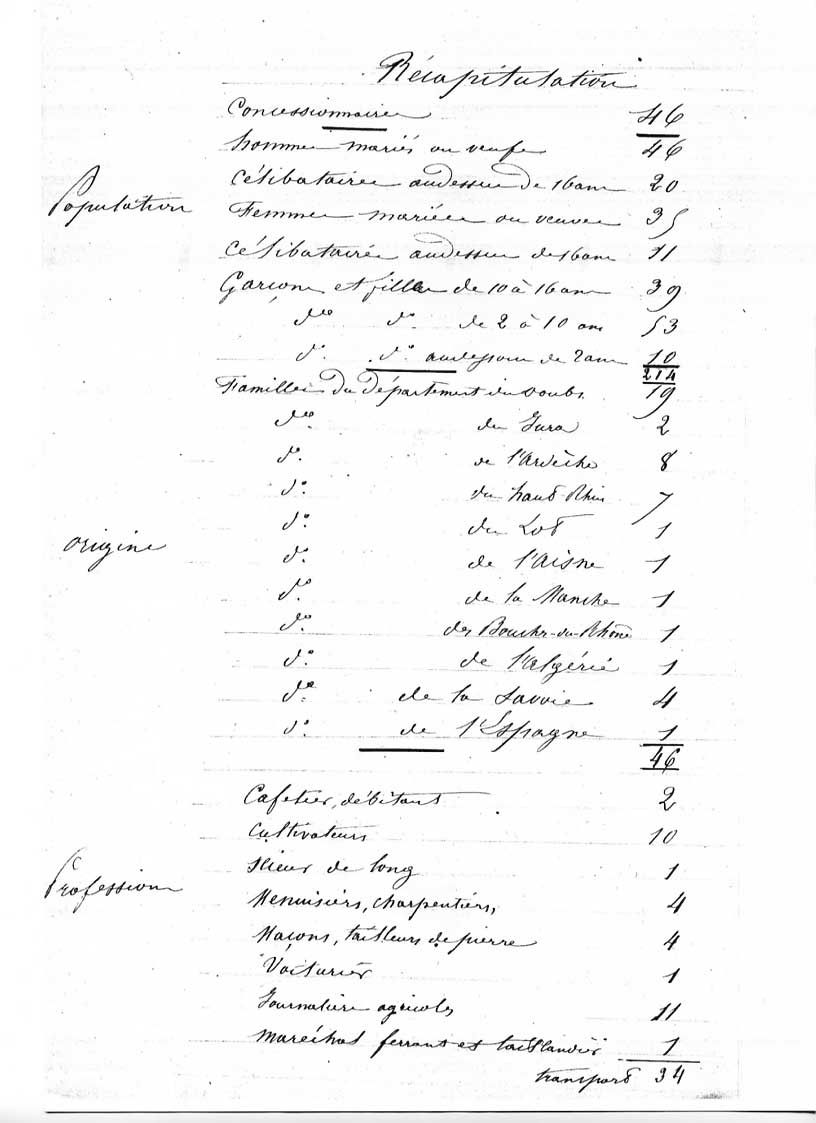 Récapitulation
Concessionnaires 46
hommes mariés ou veufs 46
Célibataires audessus de 16 ans 20
Population
Femmes mariées ou veuves 35
Célibataires audessus de 16 ans 11
Garçons et filles de 10 à 16 ans 39
do do de 2 à 10 ans 53
do do audessous de 2 ans 10
214
Familles du département du Doubs 19
do du Jura 2
do de l'Ardèche 8
do du haut-Rhin 7
do du Lot 1
origine
do de l'Aisne 1
do de la Manche 1
do des Bouches-du-Rhône 1
do de l'algérie 1
do de la Savoie 4
do de l'Espagne 1
46
Cafetier, débitant 2
Cultivateurs 10
Scieur de long 1
Professions
Menuisiers, charpentiers, 4
Maçons, tailleurs de pierre 4
Voiturier 1
Journaliers agricoles 11
Maréchal ferrant et taillandier 1
transport 34